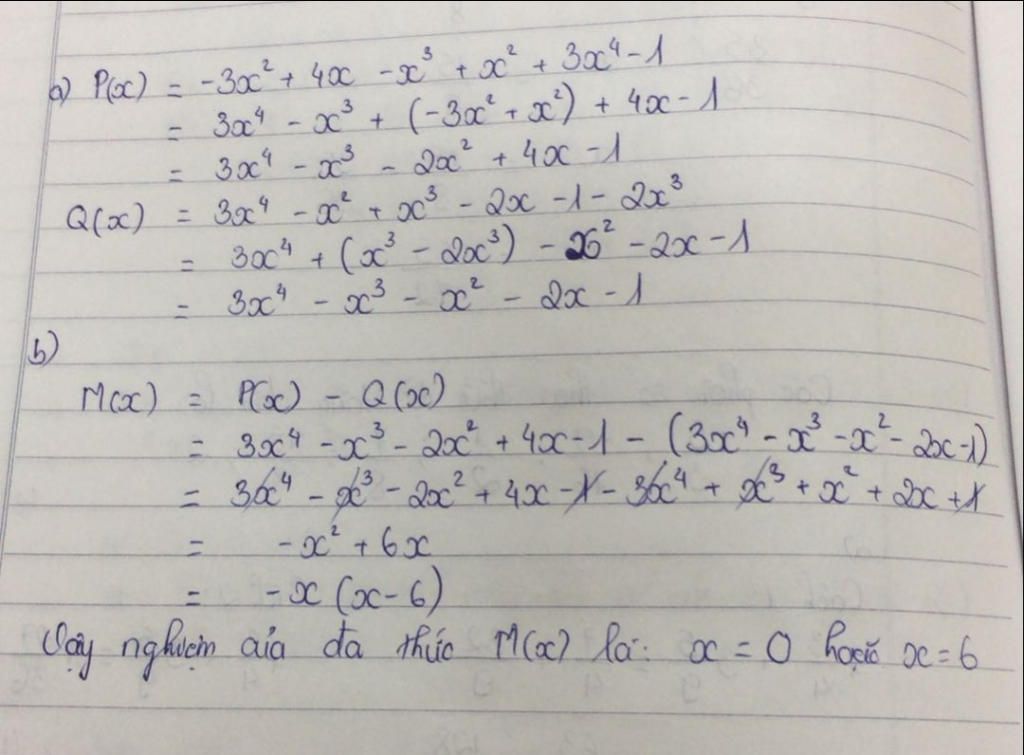 a) P(x) = -3x² + 4x - x³ + x² + 3x⁴ - 1
= 3x⁴ - x³ + (-3x² + x²) + 4x - 1
= 3x⁴ - x³ - 2x² + 4x - 1
Q(x) = 3x⁴ - x² + x³ - 2x - 1 - 2x³
= 3x⁴ + (x³ - 2x³) - x² - 2x - 1
= 3x⁴ - x³ - x² - 2x - 1
b)
M(x) = P(x) - Q(x)
= 3x⁴ - x³ - 2x² + 4x - 1 - (3x⁴ - x³ - x² - 2x - 1)
= 3x⁴ - x³ - 2x² + 4x - 1 - 3x⁴ + x³ + x² + 2x + 1
= -x² + 6x
= -x (x - 6)
Vậy nghiệm của đa thức M(x) là: x = 0 hoặc x = 6